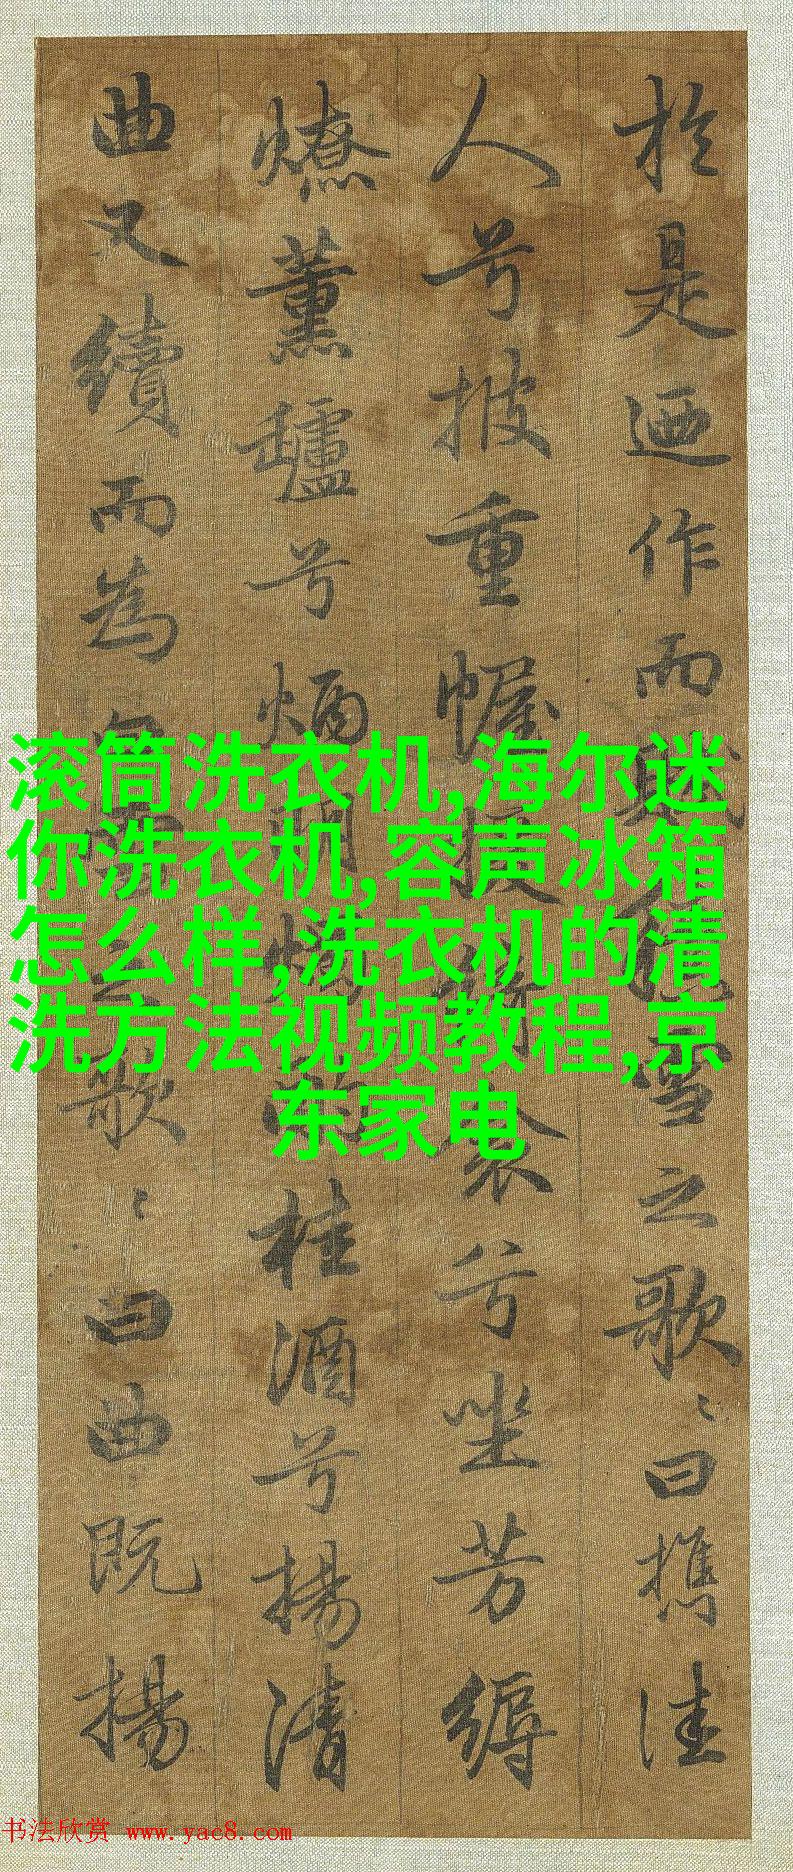 於是迺作而賦積雪之歌〻曰攜佳
人兮披重幄援綺衾兮坐芳縟
燎薰罏兮炳明燭酌桂酒兮揚清
曲又續而為白雪之歌〻曰曲既揚
滚筒洗衣机,海尔迷
你洗衣机,容声冰箱
怎么样,洗衣机的清
洗方法视频教程,京
东家电
书法欣赏 www.yac8.com